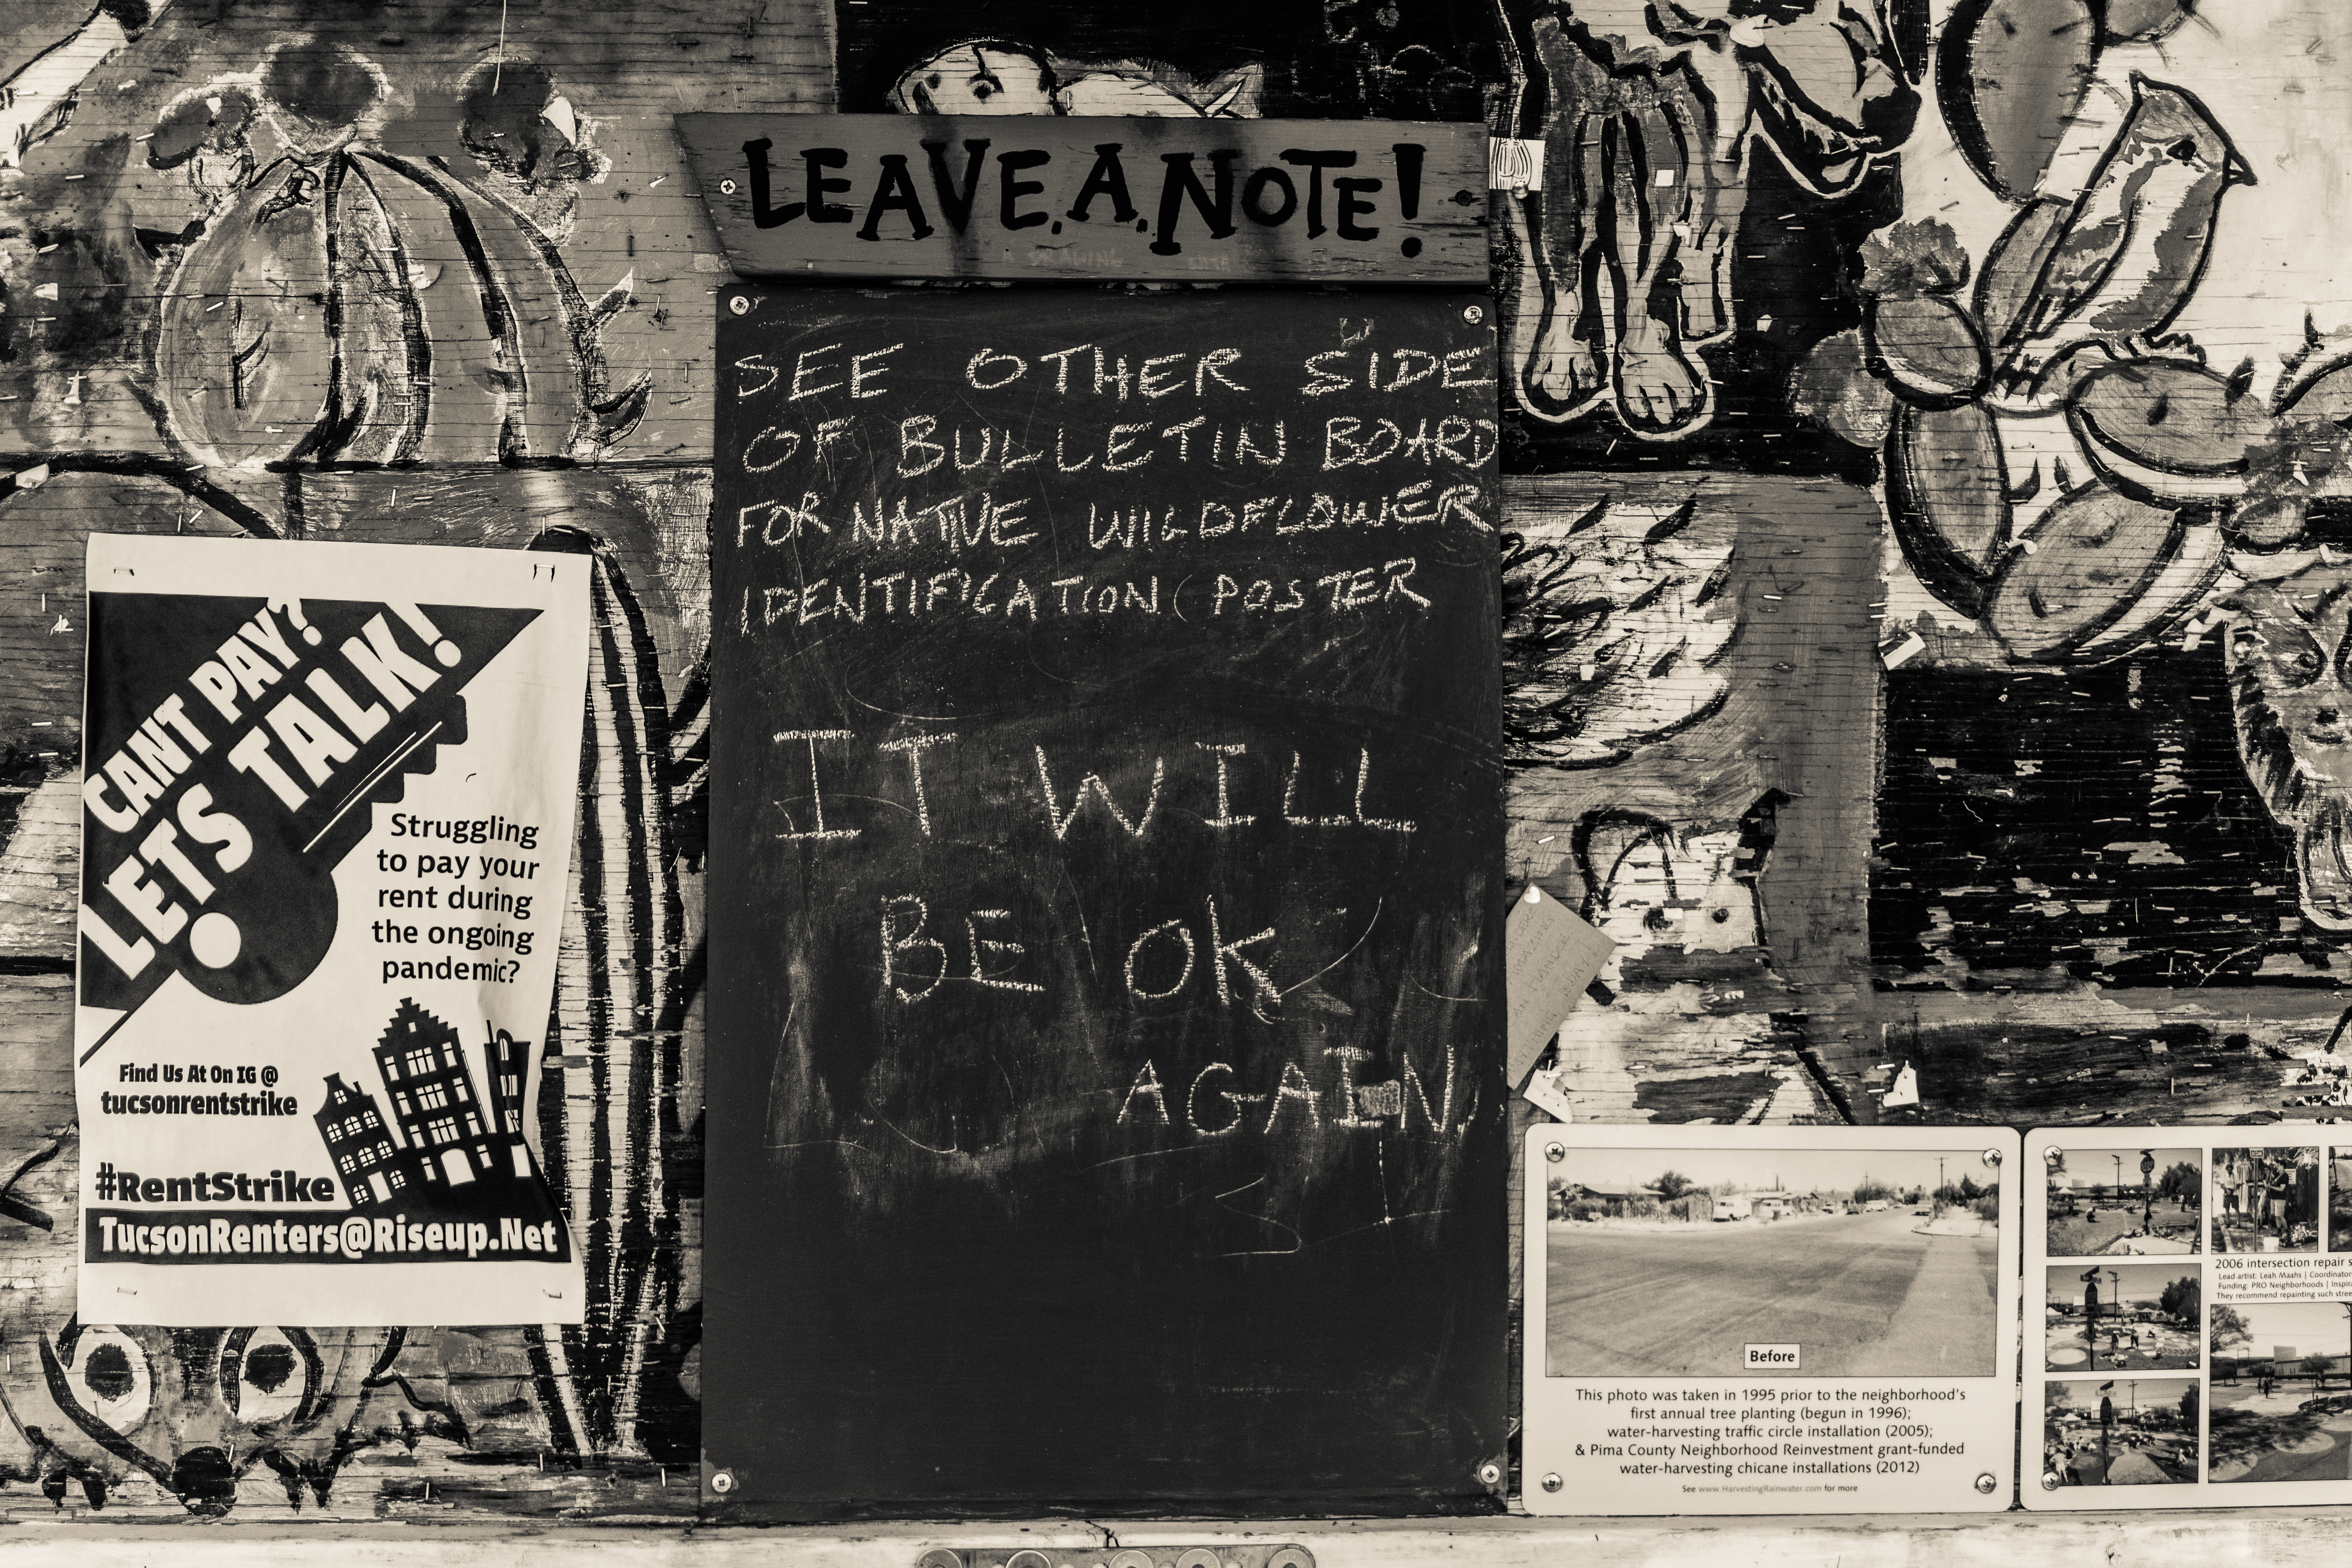 LEAVE.A.NOTE!
SEE OTHER SIDE
OF BULLETIN BOARD
FOR NATIVE WILDFLOWER
IDENTIFICATION ( POSTER
IT WILL
BE OK
AGAIN
CANT PAY?
LETS TALK!
Struggling
to pay your
rent during
the ongoing
pandemic?
Find Us At On IG @
tucsonrentstrike
#RentStrike
TucsonRenters@Riseup.Net
Before
This photo was taken in 1995 prior to the neighborhood's
first annual tree planting (begun in 1996);
water-harvesting traffic circle installation (2005);
& Pima County Neighborhood Reinvestment grant-funded
water-harvesting chicane installations (2012)
See www.HarvestingRainwater.com for more
2006 intersection repair
Lead artist: Leah Maahs | Coordinator
Funding: PRO Neighborhoods |
They recommend repainting such